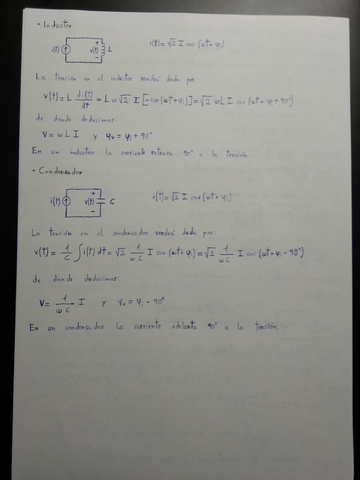 • Inductor
i(t) + v(t) - L i(t)=√2 I cos (ωt+φi)
La tensión en el inductor vendrá dada por:
v(t) = L di(t)/dt = Lω√2 I [-sen(ωt+φi)] = √2 ωL I cos(ωt+φi+90°)
de donde deducimos:
V = ωL I y φv = φi + 90°
En un inductor la corriente retrasa 90° a la tensión.
• Condensador
i(t) + v(t) - C i(t)=√2 I cos (ωt+φi)
La tensión en el condensador vendrá dada por:
v(t) = 1/C ∫ i(t) dt = √2 1/ωC I sen (ωt+φi) = √2 1/ωC I cos (ωt+φi-90°)
de donde deducimos:
V = 1/ωC I y φv = φi - 90°
En un condensador la corriente adelanta 90° a la tensión.